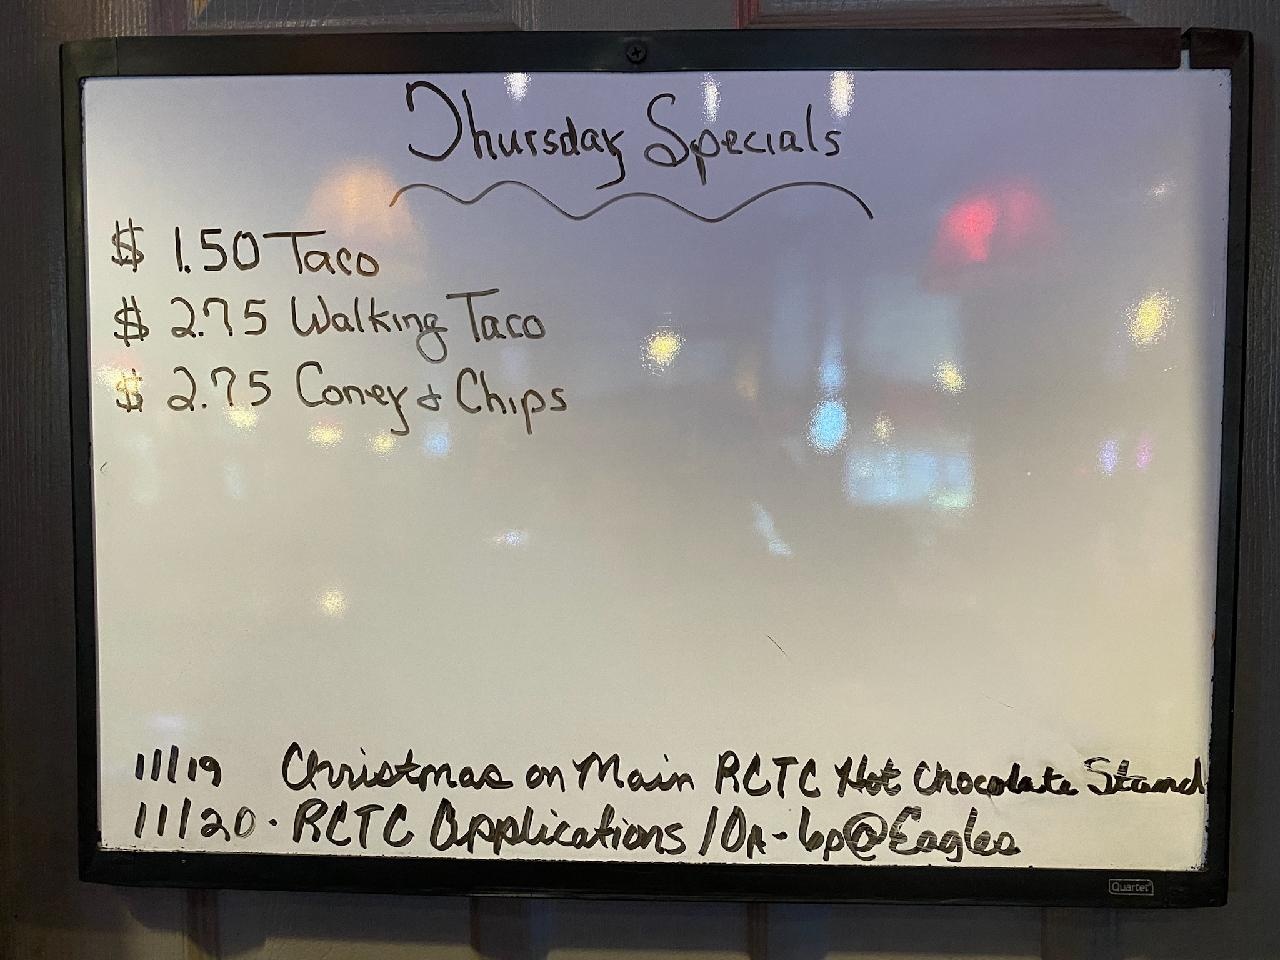 Thursday Specials
$ 1.50 Taco
$ 2.75 Walking Taco
$ 2.75 Coney & Chips
11/19 Christmas on Main RCTC Hot Chocolate Stand
11/20 · RCTC Applications 10A-6p@Eagles
Quartet